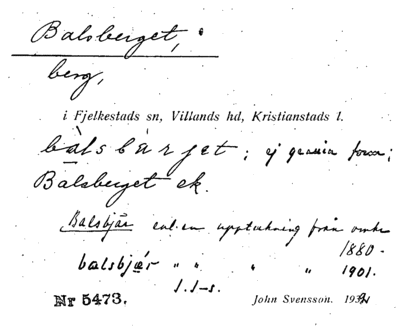 Balsberget,
berg,
i Fjelkestads sn, Villands hd, Kristianstads l.
bàlsbàrjet; ej genuin form;
Balsberget ek.
Balsbjär enl. en uppteckning från omkr
1880.
balsbjär " " " " 1901.
Nr 5473. John Svensson. 193